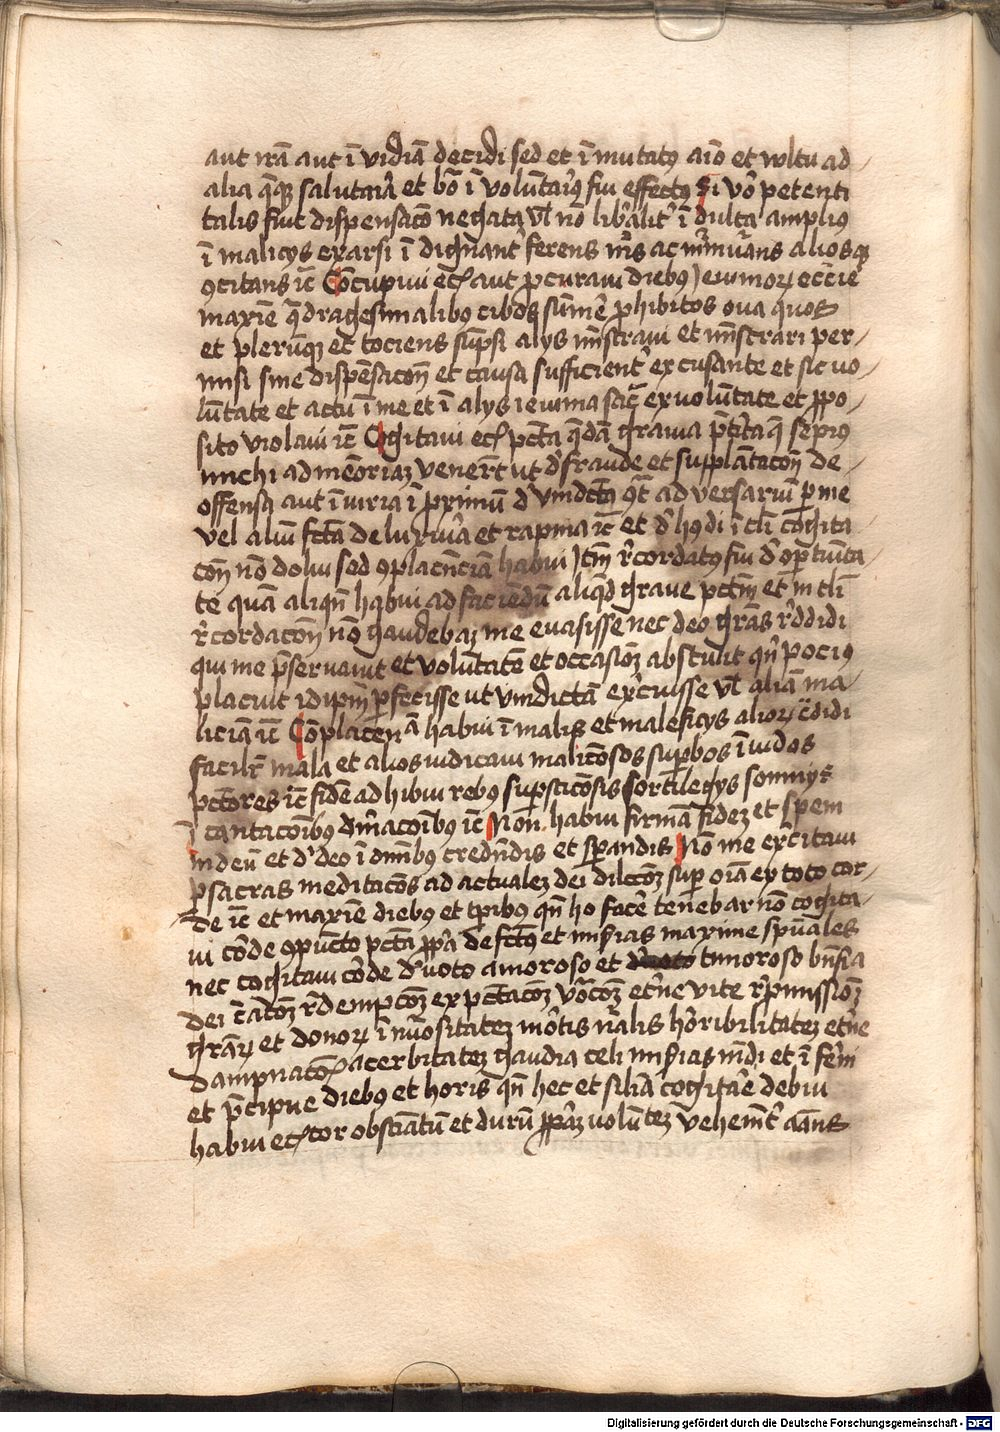 aut irā aut ī vidiā decidi sed et ī mutatꝰ aīo et vultu ad
alia q̄qꝫ salutaria et bō ī volūtariꝰ fui effectꝰ Si vo petenti
talis fuit dispensacō negata vl nō libalit ī dulta ampliꝰ
ī malicys exarsi ī dignant ferens ac aliosqꝫ
ꝯcitans ic Cōcupiui ec aut pcuraui diebꝰ ieiuniorꝝ eccie
maxie q̄dragesimalibꝰ cibos sūme phibitos oua quoqꝫ
et plerūqꝫ et tociens sūpsi alys mistraui et mistrari per
misi sine dispēsacōn et causa sufficient excusante et sic vo
lūtate et actu ī me et ī alys ieiunia sac ex volūtate et ꝓpo
sito violaui ic Cogitaui ec pcta q̄dā grauia ptita q̄ sepiꝰ
michi ad memoriaꝫ venert ut d fraude et supplātacōn de
offensa aut ī iuria ī primū d vindcta ꝯt adversariū p me
vel aliū fctā de luxuria et rapina ic et d hꝰdi ī tli cogita
cōn nō dolui sed ꝯplacnciā habui Itm rcordatꝰ fui d optunita
te quā aliqn habui ad faciedū aliqd graue pctm et in tli
rcordacōn nō gaudebaꝫ me euasisse nec deo gras rddidi
qui me pseruauit et volūtatē et occasioꝫ abstulit qn pociꝰ
placuit id ipm pfecisse ut vindictā exercuisse vl aliā ma
liciā ic Cōplacenciā habui ī malis et maleficys aliorꝝ cdidi
facilr mala et alios iudicaui malicosos supbos īuidos
pctores ic fidē adhibui rebꝰ supsticosis sortilegys sompnys
ī cantacōibꝰ diuinacōibꝰ ic Non habui firmā fideꝫ et spem
in deū et d deo ī omibꝰ credndis et spandis Nō me excitaui
p sacras meditacōs ad actualeꝫ dei dilccoꝫ sup oia ex toto cor
de ic et maxie diebꝰ et tpibꝰ qn ho face tenebar nō cogita
ui corde ꝯpucto pcta ꝓpa defctꝰ et miserias maxime spuales
nec cogitaui corde deuoto amoroso et timoroso bnficia
dei creacoꝫ rdempcoꝫ expctacoꝫ vocacoꝫ etne vite rpmissioꝫ
graꝝ et donorꝝ ī nuositateꝫ mortis nralis horribilitateꝫ etne
dampnacōs acerbitateꝫ gaudia celi miserias mdi et ī ferni
et pcipue diebꝰ et horis qn hec et silia cogitare debui
habui ec cor obstīatū et durū ꝓpaꝫ volūtateꝫ vehement amās
Digitalisierung gefördert durch die Deutsche Forschungsgemeinschaft - DFG